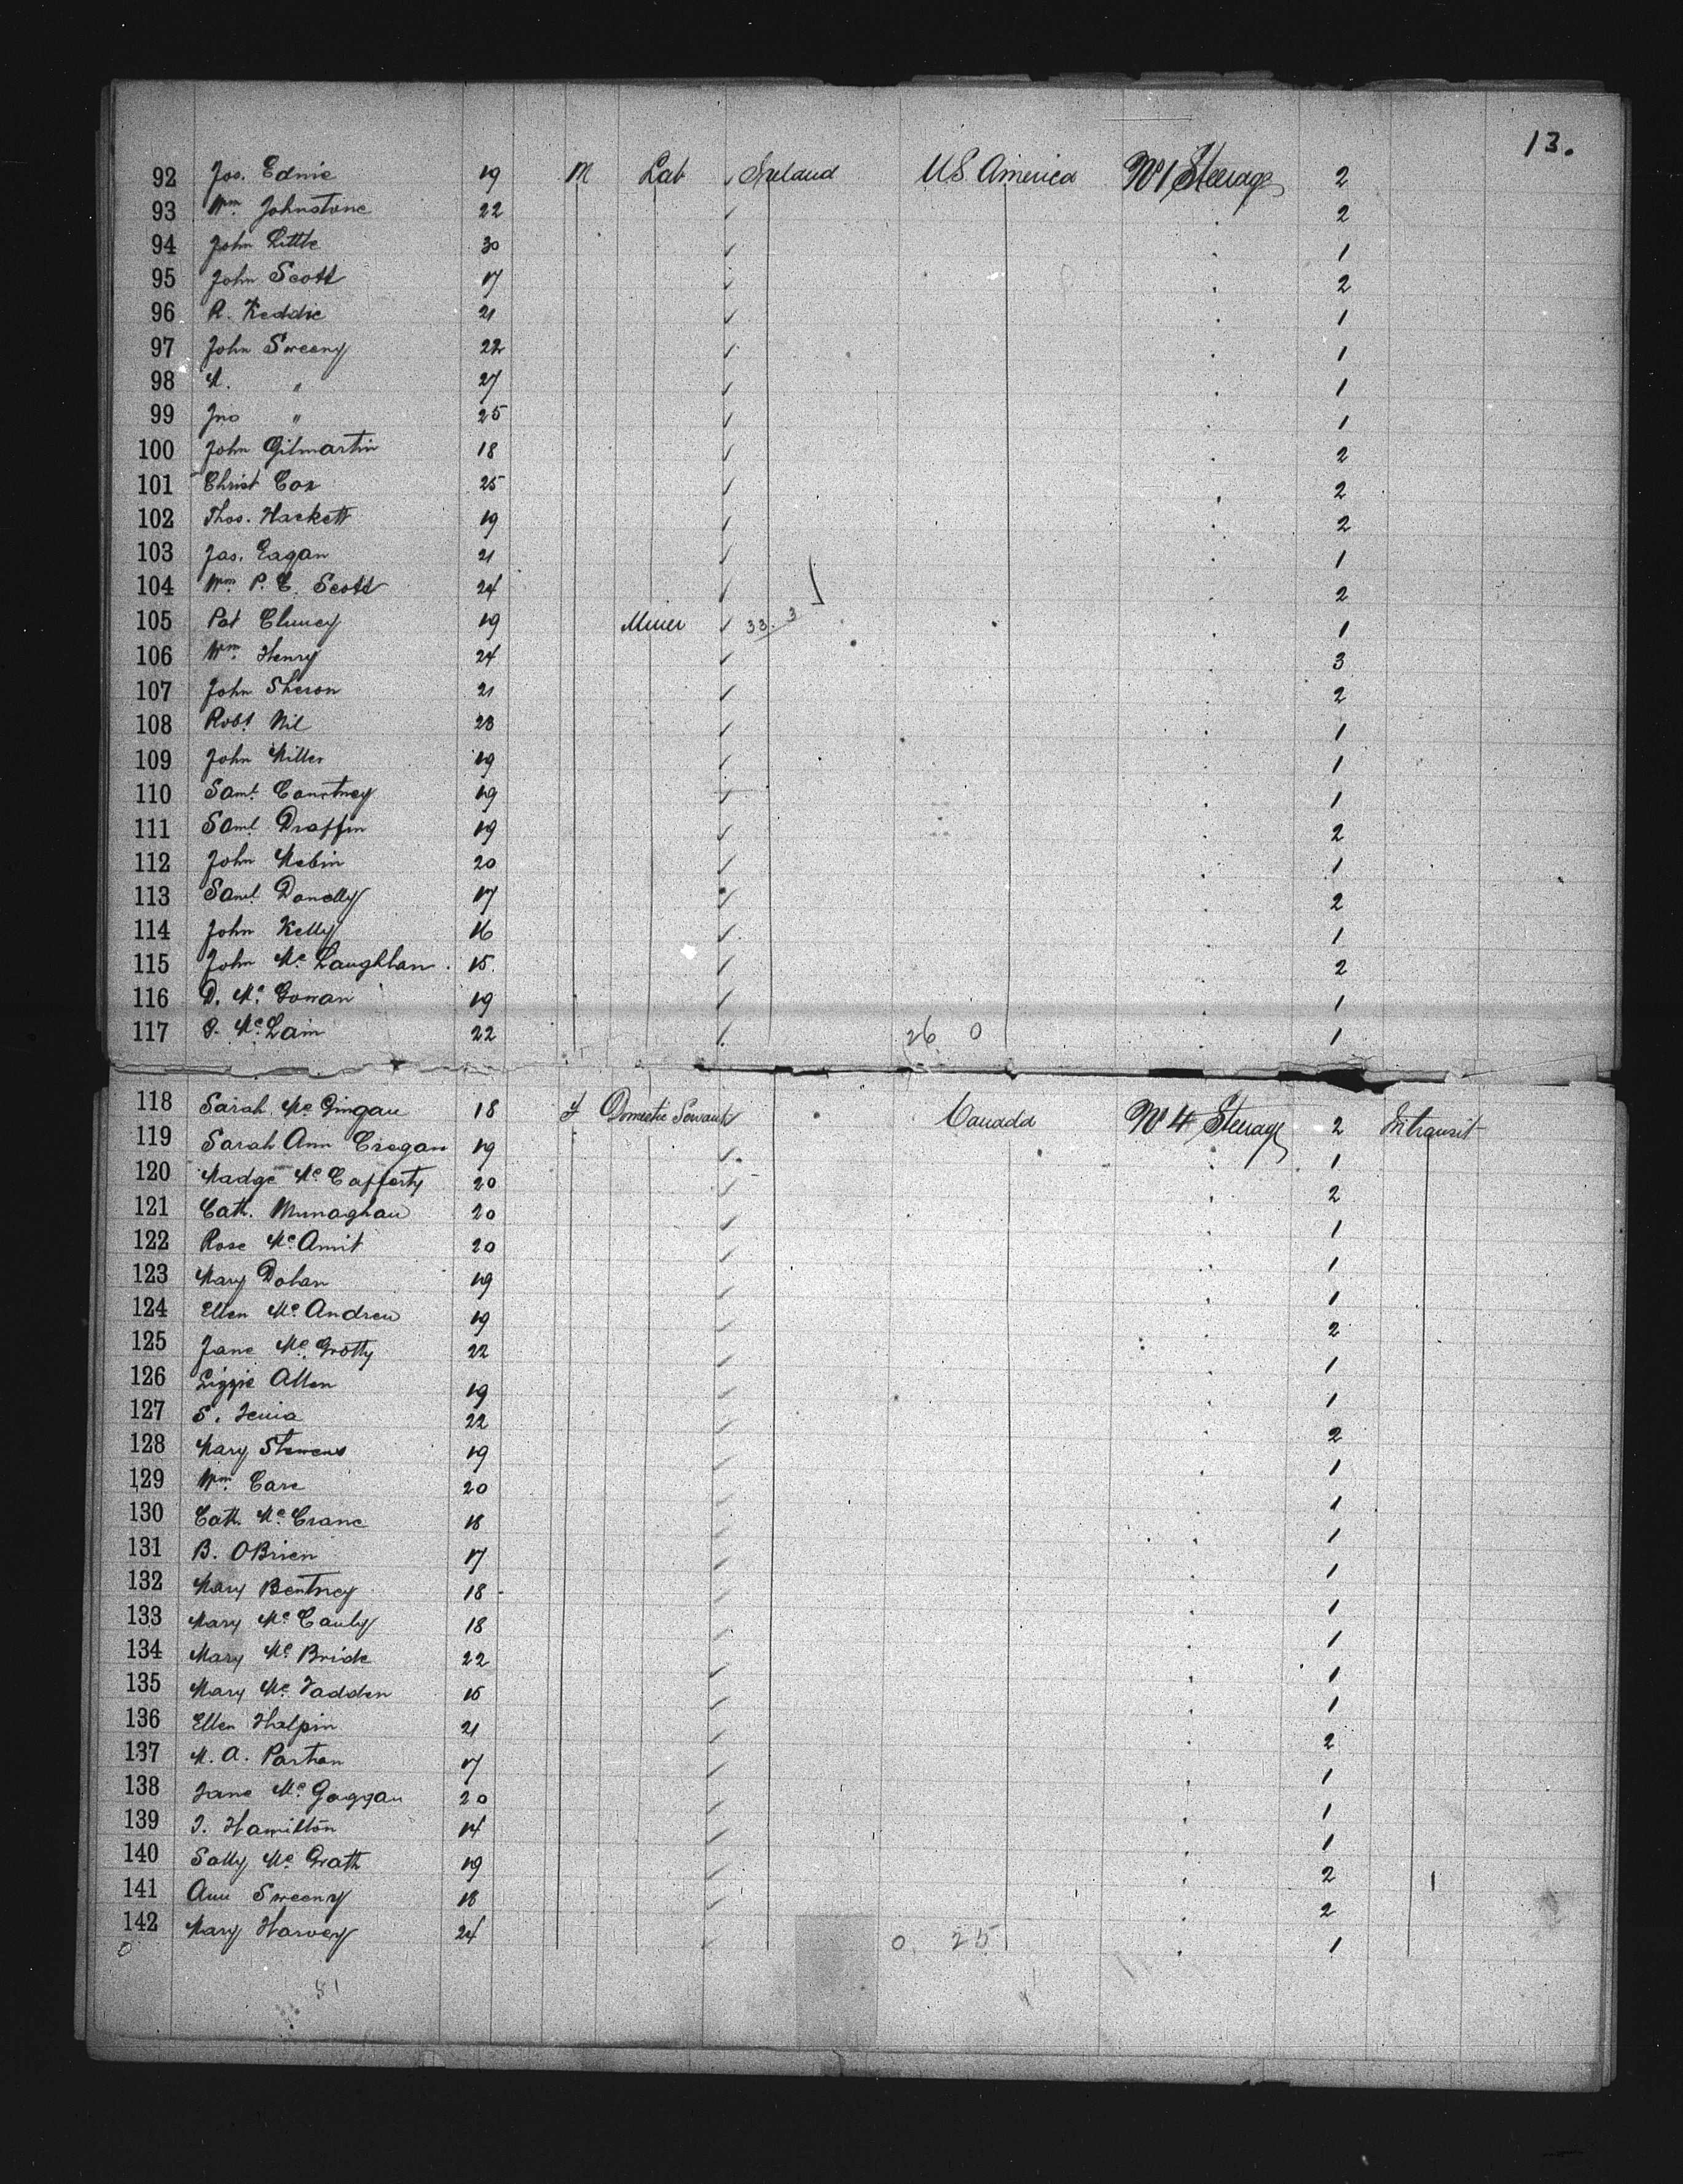 13.
92 Jos. Ednie 19 M Lab Ireland U.S. America No 1 Steerage 2
93 Wm. Johnstone 22 2
94 John Little 30 1
95 John Scott 17 2
96 R. Keddie 21 1
97 John Sweeny 22 1
98 M. " 27 1
99 Jno " 25 1
100 John Gilmartin 18 2
101 Christ Cox 25 2
102 Thos. Hackett 19 2
103 Jas. Eagan 21 1
104 Wm. P. C. Scott 24 2
105 Pat Cluney 19 Miner 33. 3 1
106 Wm. Henry 24 3
107 John Sheron 21 2
108 Robt. Nil 23 1
109 John Miller 19 1
110 Saml. Courtney 19 1
111 Saml Draffin 19 2
112 John Mebin 20 1
113 Saml. Donelly 17 2
114 John Kelly 16 1
115 John Mc Laughlan 15 2
116 D. Mc Gowan 19 1
117 Mc Lain 22 26 0 1
118 Sarah Mc Gingau 18 F Domestic Servant Canada No 4 Steerage 2 Intransit
119 Sarah Ann Cregan 19 1
120 Madge Mc Cafferty 20 2
121 Cath. Munaghau 20 1
122 Rose Mc Amit 20 1
123 Mary Dolan 19 1
124 Ellen Mc Andrew 19 2
125 Jane Mc Grotty 22 1
126 Lizzie Allen 19 1
127 S. 22 2
128 Mary Stewens 19 1
129 Wm. Care 20 1
130 Cath. Mc Crane 18 1
131 B. OBrien 17 1
132 Mary Bentney 18 1
133 Mary Mc Cauly 18 1
134 Mary Mc Bride 22 1
135 Mary Mc Fadden 18 1
136 Ellen Halpin 21 2
137 M. A. Parthan 17 1
138 Jane Mc Goggan 20 1
139 J. Hamilton 14 1
140 Sally Mc Grath 19 2 1
141 Ann Sweeny 18 2
142 Mary Harvey 24 0 25 1
0
51